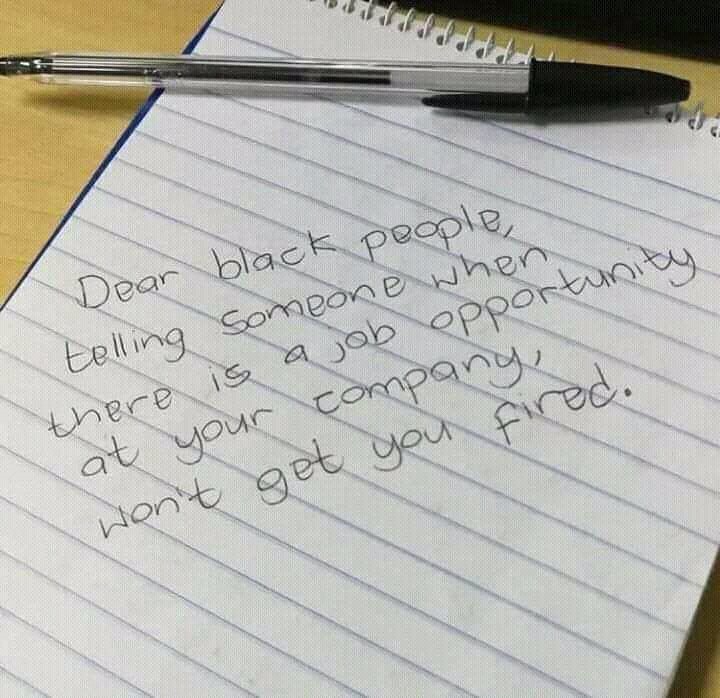 Dear black people,
telling someone when
there is a job opportunity
at your company,
won't get you fired.